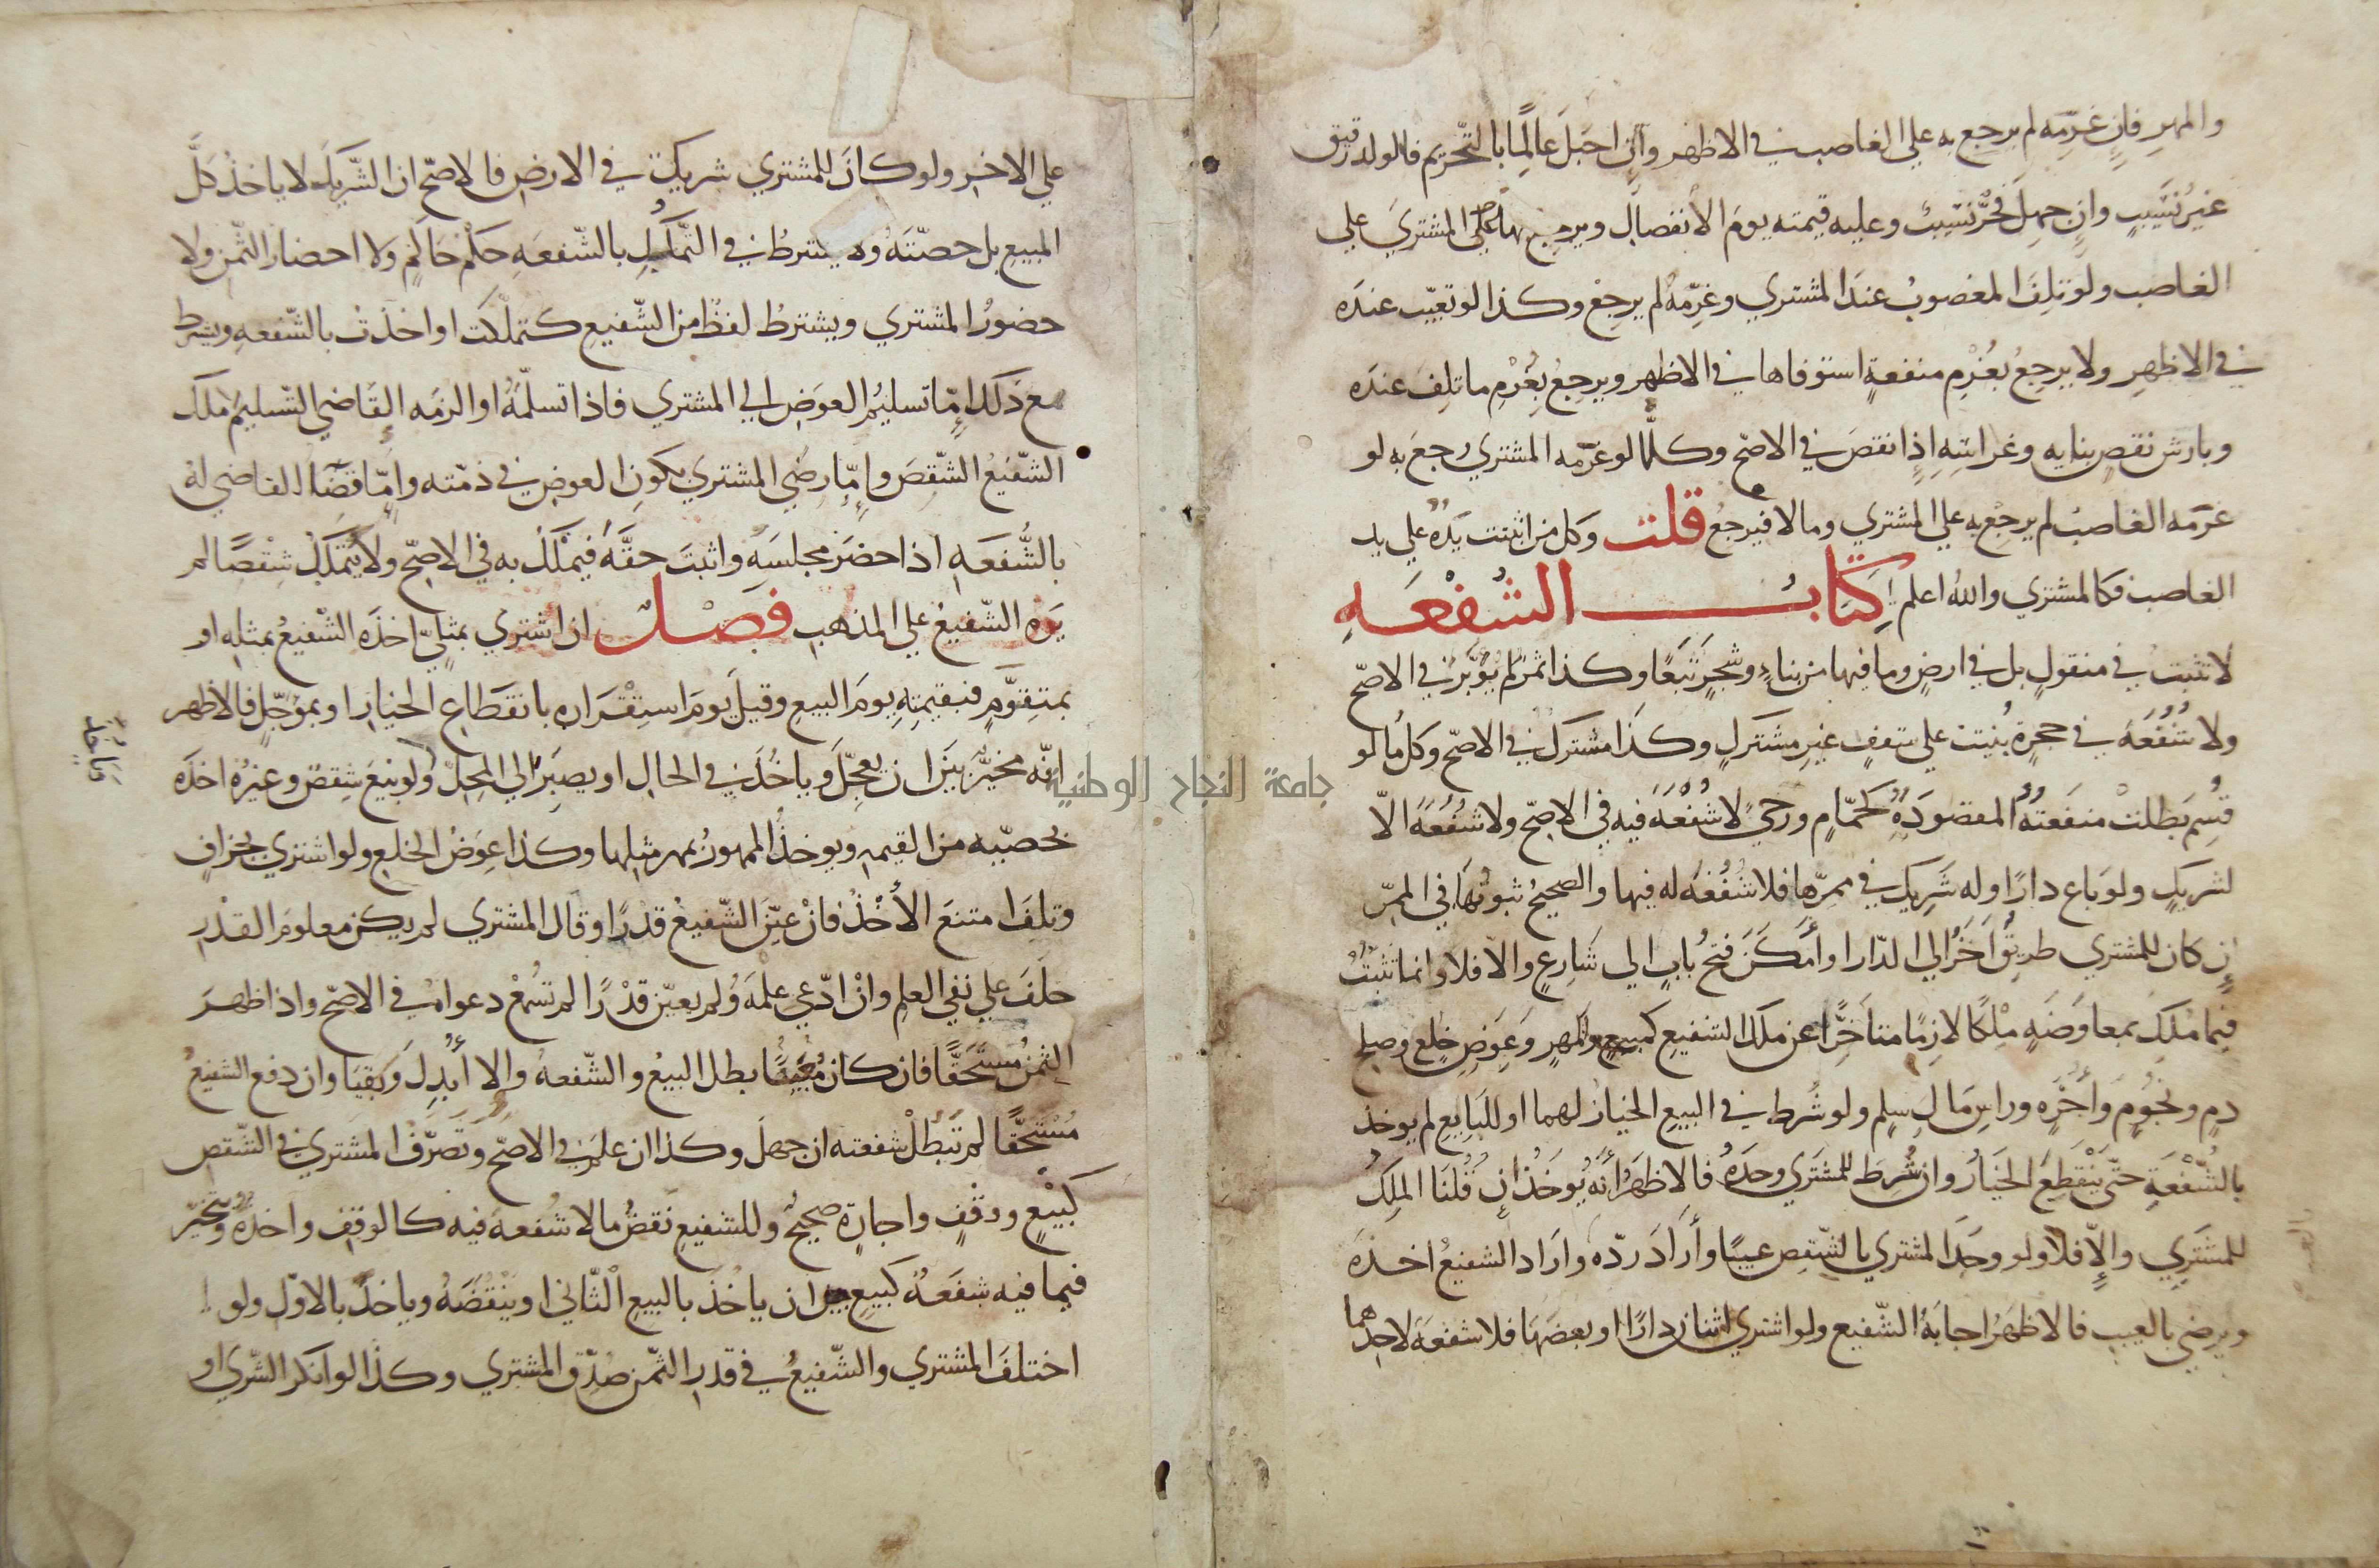 والمهر فإن غرّمه لم يرجع به علي الغاصب في الاظهر وان احبل عالمًا بالتّحريم فالولد رقيق
غير نسيب وان جهل فحرٌّ نسيب وعليه قيمته يوم الانفصال ويرجع بها المشتري علي
الغاصب ولو تلف المغصوب عند المشتري وغرّمه لم يرجع وكذا لو تعيّب عنده
في الاظهر ولا يرجع بغرم منفعةٍ استوفاها في الاظهر ويرجع بغرم ما تلف عنده
وبارش نقص بنايه وغراسه اذا نقص في الاصحّ وكلّما لو غرّمه المشتري رجع به لو
غرّمه الغاصب لم يرجع به علي المشتري وما لا فيرجع قلت وكل من اثبتت يده علي يد
الغاصب فكالمشتري والله اعلم كتاب الشفعه
لا تثبت في منقولٍ بل في ارضٍ وما فيها من بناءٍ وشجرٍ تبعًا وكذا ثمرٌ لم يؤبّر في الاصحّ
ولا شفعة في حجرة بنيت علي سقفٍ غير مشتركٍ وكذا مشترك في الاصحّ وكل ما لو
قسم بطلت منفعته المقصودة كحمّامٍ ورحيً لا شفعة فيه في الاصحّ ولا شفعة الّا
لشريكٍ ولو باع دارًا وله شريك في ممرّها فلا شفعة له فيها والصحيح ثبوتها في الممرّ
ان كان للمشتري طريق اخر الي الدّار او أمكن فتح بابٍ الي شارعٍ والّا فلا وانما تثبت
فيما ملك بمعاوضه ملكًا لازمًا متاخرًا عن ملك الشفيع كمبيعٍ ومهرٍ وعوض خلع وصلح
دمٍ ونجومٍ وأجرةٍ وراس مال سلمٍ ولو شرط في البيع الخيار لهما او للبايع لم يوخذ
بالشّفعة حتّي ينقطع الخيار وان شرط للمشتري وحده فالاظهر أنّه يوخذ ان قلنا الملك
للمشتري والّا فلا ولو وجد المشتري بالشّقص عيبًا وأراد ردّه واراد الشفيع اخذه
ويرضي بالعيب فالاظهر اجابة الشّفيع ولو اشتري اثنان دارًا او بعضها فلا شفعة لاحدهما
علي الاخر ولو كان للمشتري شريك في الارض فالاصحّ ان الشّريك لا ياخذ كلّ
المبيع بل حصّته ولا يشترط في التّملّك بالشّفعه حكم حاكم ولا احضار الثّمن ولا
حضور المشتري ويشترط لفظ من الشّفيع كتملّكت او اخذت بالشّفعه ويشترط
مع ذلك امّا تسليم العوض الي المشتري فاذا تسلّمه او الزمه القاضي التّسليم ملك
الشّفيع الشّقص وامّا رضي المشتري بكون العوض في ذمّته وامّا قضاء القاضي له
بالشّفعه اذا حضر مجلسه واثبت حقّه فيملك به في الاصحّ ولا يتملّك شقصًا لم
يره الشّفيع علي المذهب فصل ان اشتري بمثليّ اخذه الشّفيع بمثله او
بمتقوّمٍ فبقيمته يوم البيع وقيل يوم استقراره بانقطاع الخيار او بموجّلٍ فالاظهر
انّه مخيّر بين ان يعجّل وياخذ في الحال او يصبر الي المحلّ ولو بيع شقص وغيره اخذه
بحصّته من القيمه ويوخذ الممهور بمهر مثلها وكذا عوض الخلع ولو اشتري بجزافٍ
وتلف امتنع الأخذ فان عيّن الشّفيع قدرًا وقال المشتري لم يكن معلوم القدر
حلف علي نفي العلم وان ادّعي علمه ولم يعيّن قدرًا لم تسمع دعواه في الاصحّ واذا ظهر
الثمن مستحقًّا فان كان معيّنًا بطل البيع والشّفعه والا أبدل وبقيا وان دفع الشفيع
مستحقًّا لم تبطل شفعته ان جهل وكذا ان علم في الاصحّ وتصرّف المشتري في الشّقص
كبيعٍ ووقفٍ واجارةٍ صحيح وللشفيع نقض ما لا شفعة فيه كالوقف واخذه ويتخيّر
فيما فيه شفعة كبيعٍ بين ان ياخذ بالبيع الثّاني او ينقضه وياخذ بالاوّل ولو
اختلف المشتري والشّفيع في قدر الثّمن صدّق المشتري وكذا لو انكر الشّري او
جامعة النجاح الوطنية